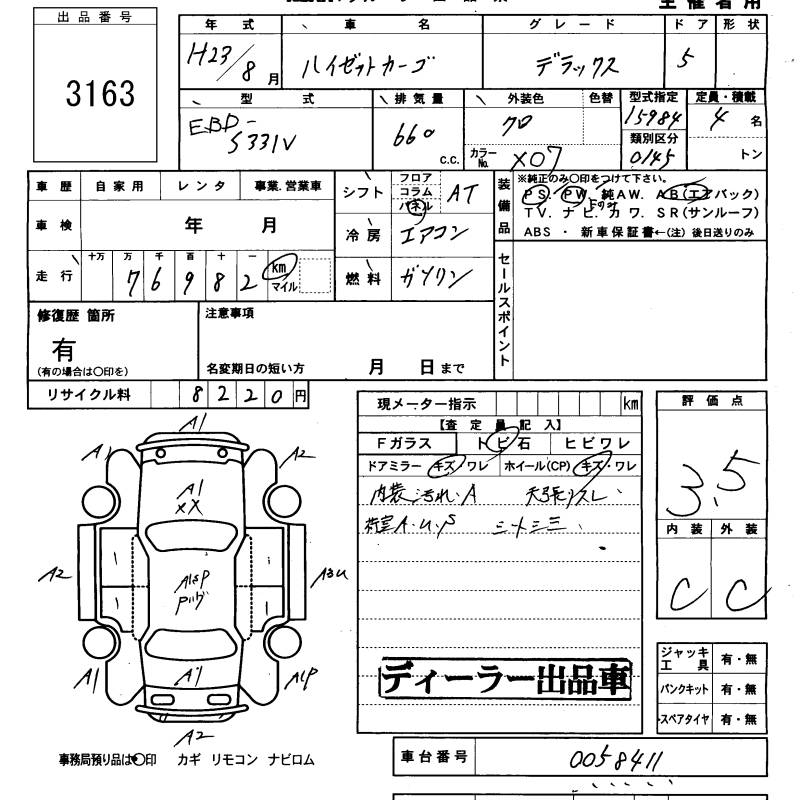 主催者用
出品番号
3163
年式 車名 グレード ドア 形状
H23/8月 ハイゼットカーゴ デラックス 5
型式 排気量 外装色 色替 型式指定 定員・積載
EBD-S331V 660 c.c. クロ 15984 4名
カラーNo. X07 類別区分 0145 トン
車歴 自家用 レンタ 事業.営業車
車検 年 月
走行 十万 万 千 百 十 一 km マイル
7 6 9 8 2
シフト フロア コラム パネル AT
冷房 エアコン
燃料 ガソリン
装備品
※純正のみ〇印をつけて下さい。
PS. PW. 純AW. AB(エアバック)
TV. ナビ. カワ. SR(サンルーフ)
ABS ・ 新車保証書←(注) 後日送りのみ
セールスポイント
修復歴 箇所
有
(有の場合は〇印を)
注意事項
名変期日の短い方 月 日まで
リサイクル料 8 2 2 0 円
現メーター指示 km
【査定員記入】
Fガラス トビ石 ヒビワレ
ドアミラー キズ/ワレ ホイール(CP) キズ・ワレ
内装汚れ.A
荷室A.U.S
ディーラー出品車
評価点
3.5
内装 外装
C C
A1
A1 A2
A1
XX
A2 A3U
A1SP
A1 A1 A1P
A2
ジャッキ工具 有・無
パンクキット 有・無
スペアタイヤ 有・無
事務局預り品は●〇印 カギ リモコン ナビロム
車台番号 0058411